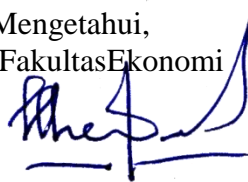 Mengetahui,
FakultasEkonomi